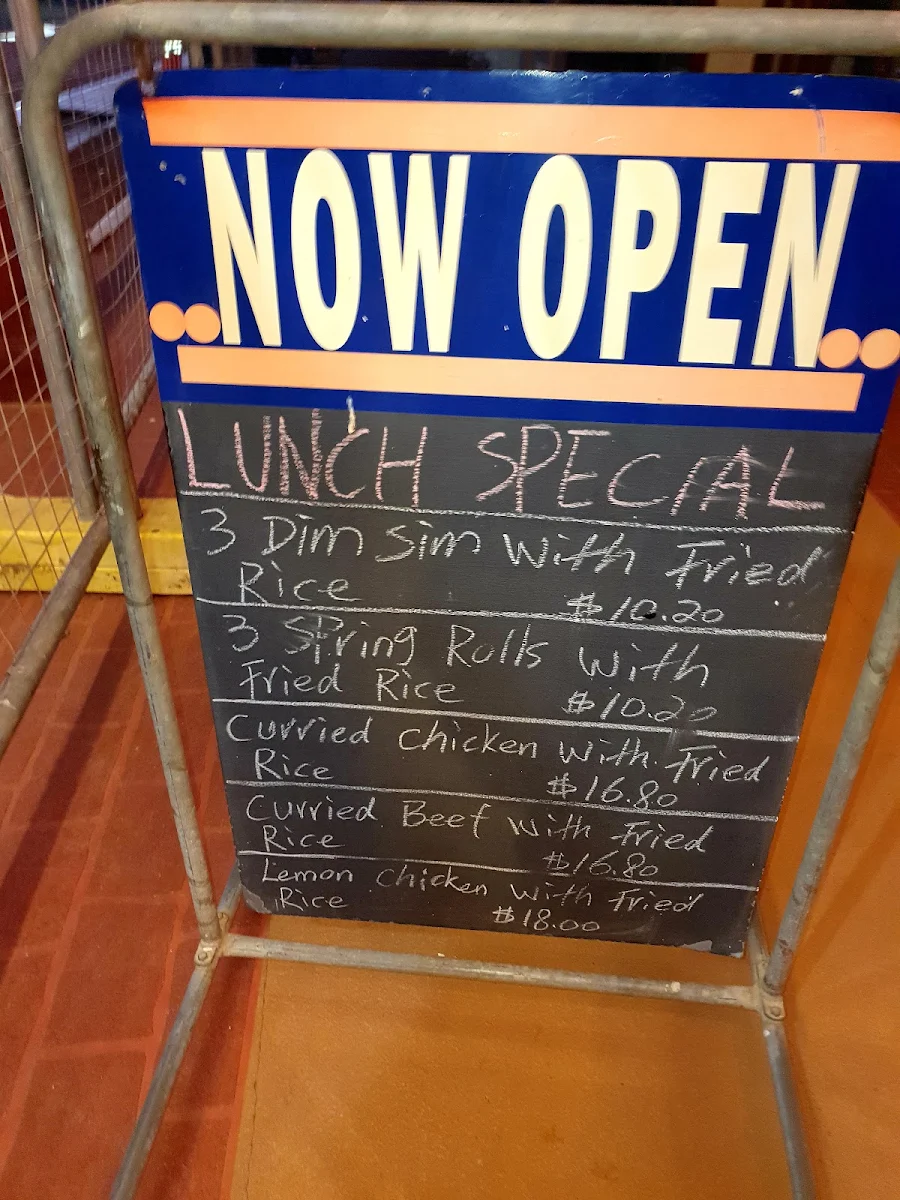 ..NOW OPEN..
LUNCH SPECIAL
3 Dim Sim With Fried
Rice $10.20
3 Spring Rolls With
Fried Rice $10.20
Curried chicken with Fried
Rice $16.80
Curried Beef With Fried
Rice $16.80
Lemon chicken with Fried
Rice $18.00